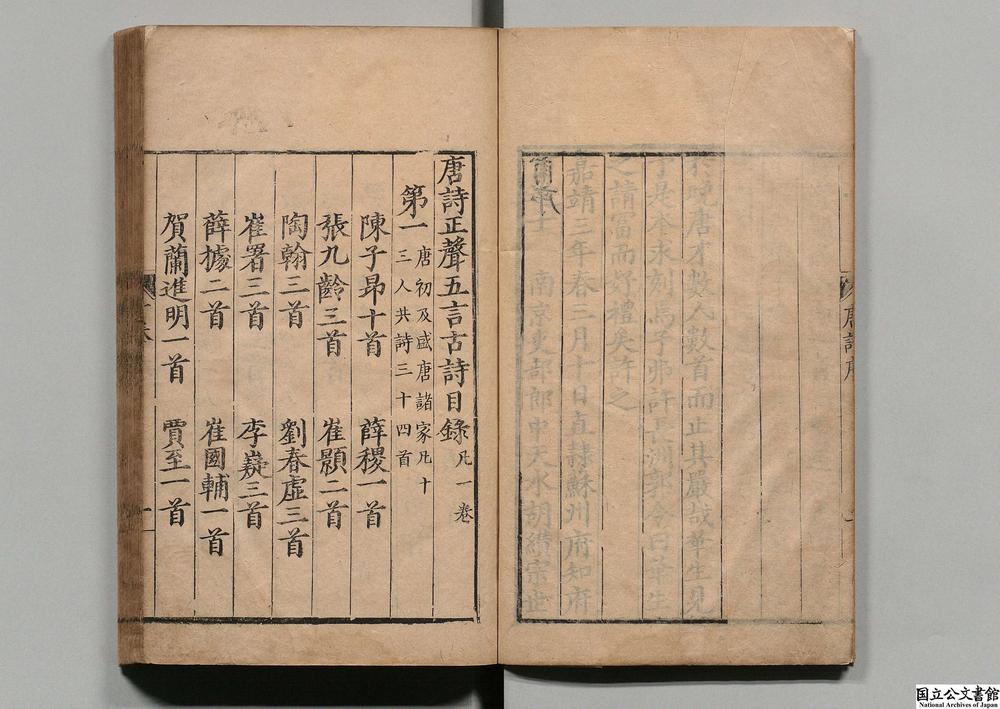 唐詩序
晚唐才數人數首而止其嚴哉華生見
是本求刻焉予弗許長洲郭令曰華生
之請富而好禮矣許之
嘉靖三年春二月十日直隸蘇州府知府
士　南京吏部郎中天水胡纘宗世
唐詩正聲五言古詩目錄 凡一卷
第一 唐初及盛唐諸家凡十
三人共詩三十四首
陳子昂十首　薛稷一首
張九齡三首　崔顥二首
陶翰三首　劉春虛三首
崔署三首　李嶷三首
薛據二首　崔國輔一首
賀蘭進明一首　賈至一首